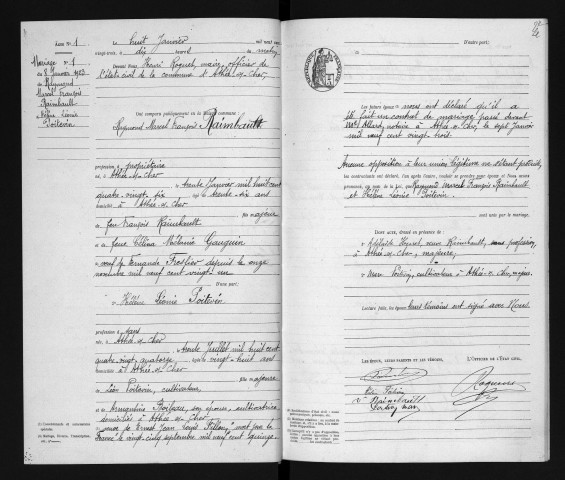 Acte N° 1
Mariage N° 1
du 8 Janvier 1923
de Raymond
Marcel François
Raimbault
et Hélène Léonie
Poitevin
Le huit Janvier mil neuf cent
vingt-trois, à dix heures du matin
Devant Nous Henri Roguet, maire, officier de
l'état civil de la commune d'Athée-s/-Cher,
Ont comparu publiquement en la Maison commune :
Raymond Marcel François Raimbault
profession propriétaire
né à Athée-s/-Cher
le trente Janvier mil huit cent
quatre-vingt-six âgé de trente-six ans
domicilié à Athée-s/-Cher
fils majeur
de feu François Raimbault
et de feue Célina Mélanie Gauguin
veuf de Fernande Froslier depuis le onze
novembre mil neuf cent vingt-un
D'une part;
Et Hélène Léonie Poitevin
profession sans
née à Athée-s/-Cher
le trente Juillet mil huit cent
quatre-vingt-quatorze âgée de vingt-huit ans
domiciliée à Athée-s/-Cher
fille majeure
de Léon Poitevin, cultivateur,
et de Armantine Boileau, son épouse, cultivatrice
domiciliés à Athée-s/-Cher
veuve de Ernest Jean Louis "mort pour la
France" le vingt-cinq septembre mil neuf cent quinze.
D'autre part;
Les futurs époux nous ont déclaré qu'il a
été fait un contrat de mariage passé devant
Me Allard, notaire à Athée-s/-Cher, le sept Janvier
mil neuf cent vingt-trois.
Aucune opposition à leur union légitime ne s'étant produite,
les contractants ont déclaré, l'un après l'autre, vouloir se prendre pour époux et Nous avons
prononcé, au nom de la Loi, que Raymond Marcel François Raimbault
et Hélène Léonie Poitevin
sont unis par le mariage.
Dont acte, dressé en présence de :
veuve Raimbault, sans profession,
à Athée-s/-Cher, majeure,
et Poitevin, cultivateur à Athée-s/-Cher, majeur.
Lecture faite, les époux, leurs témoins ont signé avec Nous.
Les époux, leurs parents et les témoins,
L'Officier de l'État civil,